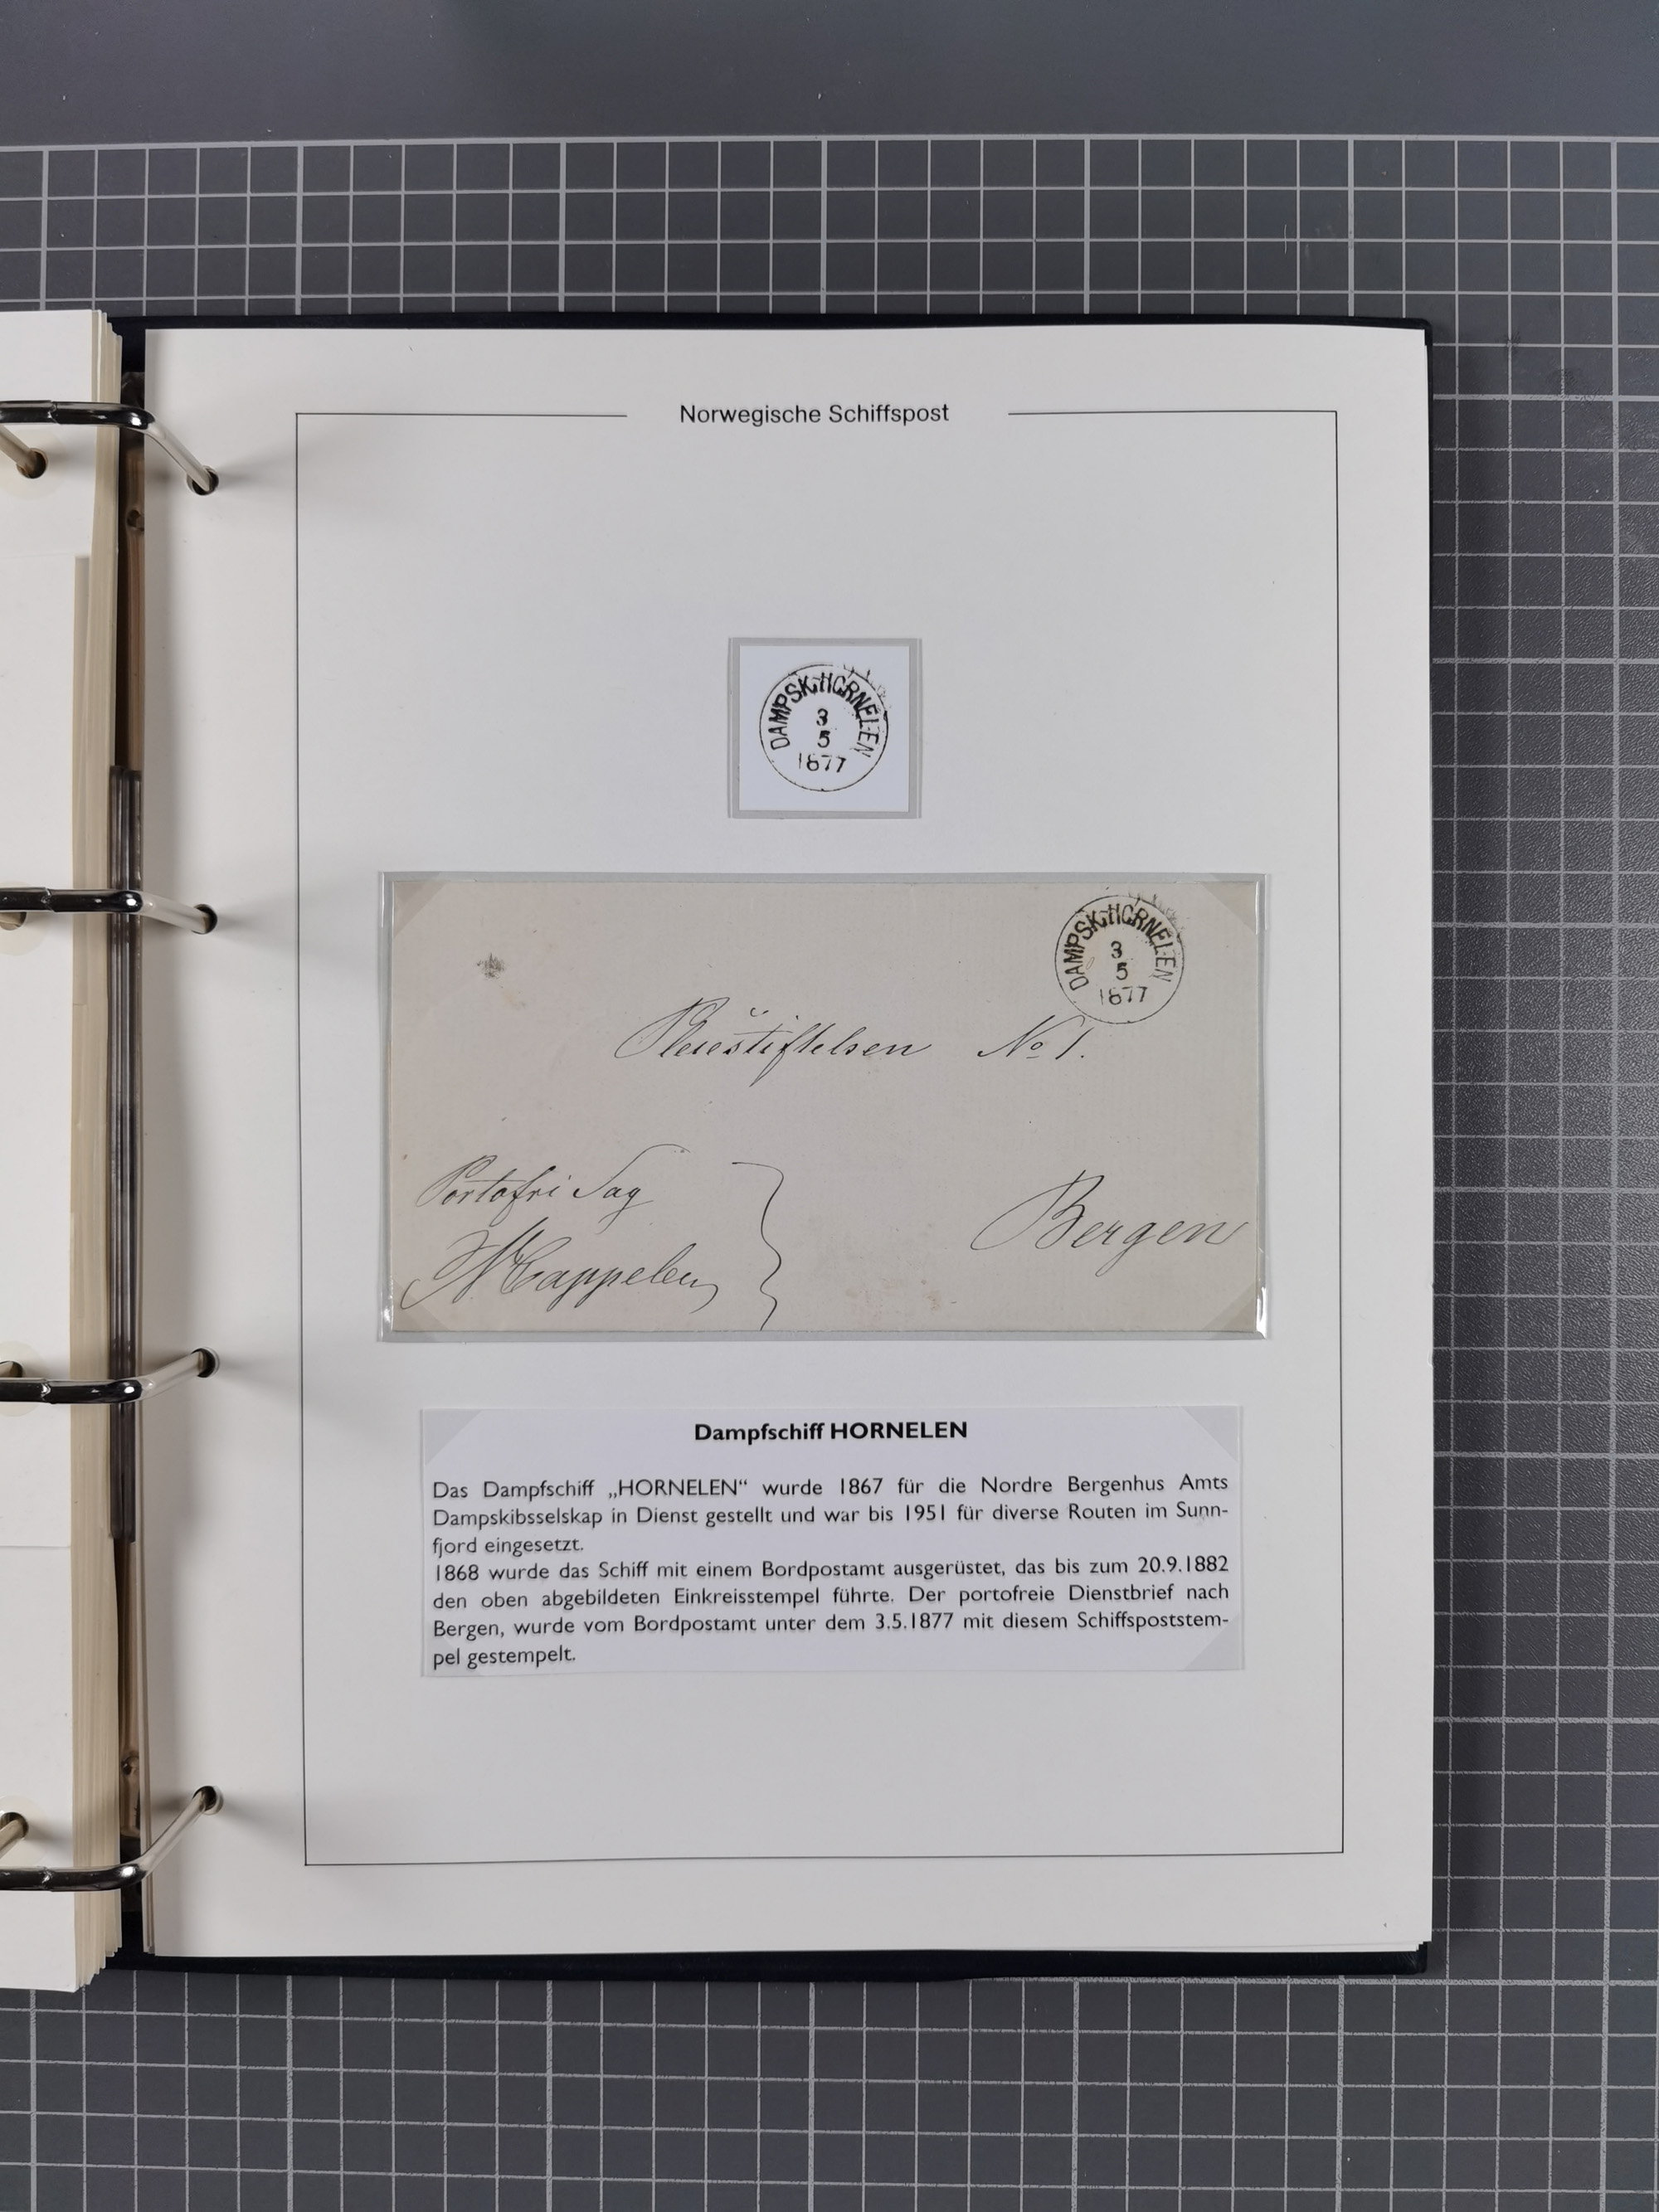 Norwegische Schiffspost
DAMPSK. HORNELEN
3
5
1877
DAMPSK. HORNELEN
3
5
1877
Pleiestiftelsen No 1.
Portofri Sag
Cappelen
Bergen
Dampfschiff HORNELEN
Das Dampfschiff „HORNELEN“ wurde 1867 für die Nordre Bergenhus Amts
Dampskibsselskap in Dienst gestellt und war bis 1951 für diverse Routen im Sunn-
fjord eingesetzt.
1868 wurde das Schiff mit einem Bordpostamt ausgerüstet, das bis zum 20.9.1882
den oben abgebildeten Einkreisstempel führte. Der portofreie Dienstbrief nach
Bergen, wurde vom Bordpostamt unter dem 3.5.1877 mit diesem Schiffspoststem-
pel gestempelt.